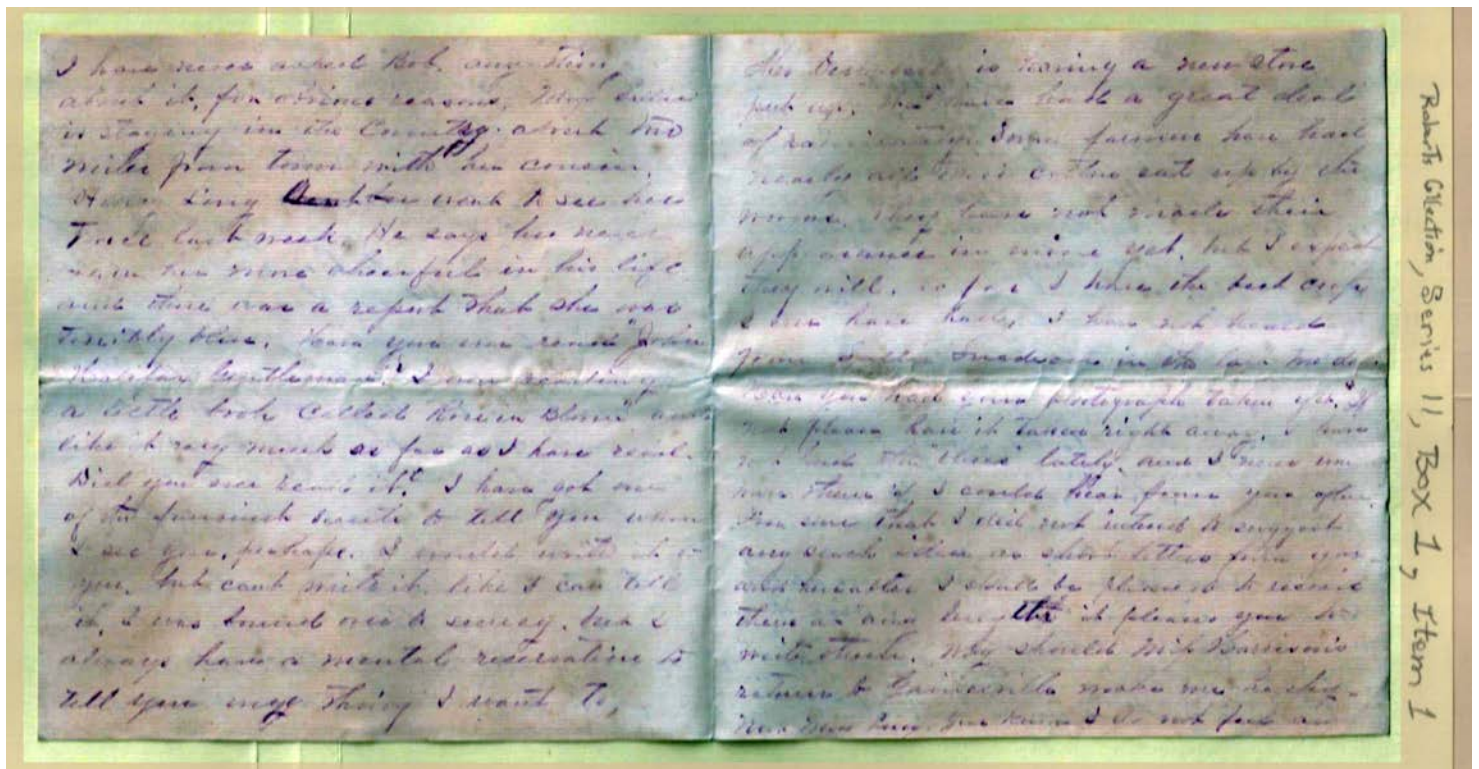 I have never asked Bob, any thing
about it, for obvious reasons. Miss
is staying in the Country about two
miles from town with her cousin,
Long went to see her
last week. He says he never
saw her more cheerful in his life
and there was a report that she was
terribly blue. Have you ever read "John
Halifax Gentleman"? I am reading
a little book called and
like it very much as far as I have read.
Did you ever read it? I have got one
of the funniest secrets to tell you when
I see you, perhaps. I would write it to
you, but cant write it like I can tell
it. I was bound over to secrecy, but I
always have a mental reservation to
tell you any thing I want to,
is having a new store
put up. We have had a great deal
of rain Some farmers have had
nearly all their cotton eat up by the
worms. They have not made their
appearance in mine yet, but I expect
they will, so far I have the best crop
I ever have had. I have not heard
from in
Have you had your photograph taken yet, if
not please have it taken right away. I have
had the "blues" lately. and I never
have them if I could hear from you often.
I'm sure that I did not intend to suggest
any such idea as short letters from you
and hereafter I shall be pleased to receive
them as it pleases you to
write them. Why should Miss Harrison's
return to Gainesville make me
you know I do not feel any
Roberts Collection, Series 11, Box 1, Item 1